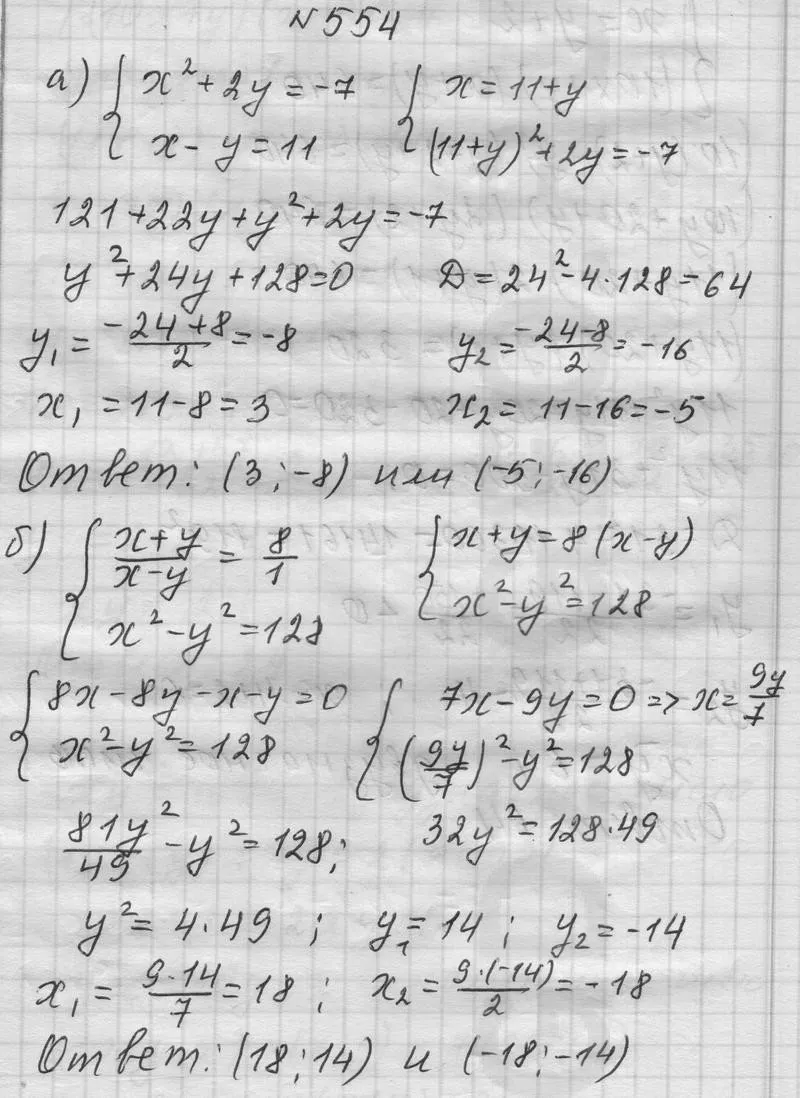 №554
а) { x² + 2y = -7 { x = 11 + y
x - y = 11 (11+y)² + 2y = -7
121 + 22y + y² + 2y = -7
y² + 24y + 128 = 0 Д = 24² - 4·128 = 64
y₁ = (-24+8)/2 = -8 y₂ = (-24-8)/2 = -16
x₁ = 11 - 8 = 3 x₂ = 11 - 16 = -5
Ответ: (3; -8) или (-5; -16)
б) { (x+y)/(x-y) = 8/1 { x + y = 8(x-y)
x² - y² = 128 x² - y² = 128
{ 8x - 8y - x - y = 0 { 7x - 9y = 0 => x = 9y/7
x² - y² = 128 (9y/7)² - y² = 128
81y²/49 - y² = 128; 32y² = 128·49
y² = 4·49 ; y₁ = 14 ; y₂ = -14
x₁ = 9·14/7 = 18 ; x₂ = 9·(-14)/2 = -18
Ответ: (18; 14) и (-18; -14)